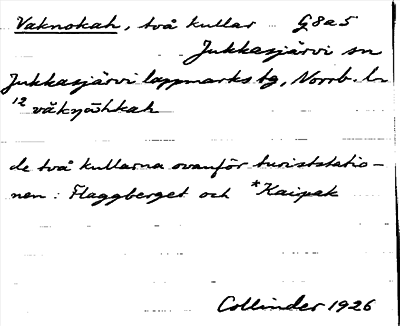 Vaknokah, två kullar G8a5
Jukkasjärvi sn
Jukkasjärvi lappmarks tg, Norrb. ln
de två kullarna ovanför turiststatio-
nen: Flaggberget och *Kaipak
Collinder 1926